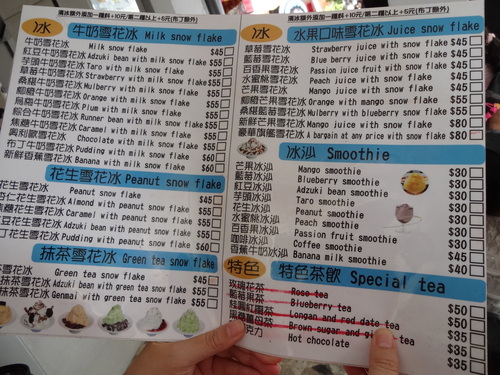 滿冰額外添加一種料+10元/第二種以上+5元(布丁除外)
冰 牛奶雪花冰 Milk snow flake
牛奶雪花冰 Milk snow flake $45
紅豆牛奶雪花冰 Adzuki bean with milk snow flake $55
芋頭牛奶雪花冰 Taro with milk snow flake $55
草莓牛奶雪花冰 Strawberry with milk snow flake $55
桑椹牛奶雪花冰 Mulberry with milk snow flake $55
柳橙牛奶雪花冰 Orange with milk snow flake $55
烏梅牛奶雪花冰 Plum with milk snow flake $55
綜合牛奶雪花冰 Runner bean with milk snow flake $55
焦糖牛奶雪花冰 Caramel with milk snow flake $55
巧克力雪花冰 Chocolate with milk snow flake $55
布丁牛奶雪花冰 Pudding with milk snow flake $60
新鮮香蕉雪花冰 Banana with milk snow flake $60
花生雪花冰 Peanut snow flake
花生雪花冰 Peanut snow flake $45
杏仁花生雪花冰 Almond with peanut snow flake $55
焦糖花生雪花冰 Caramel with peanut snow flake $55
豆花生雪花冰 Adzuki bean with peanut snow flake $55
丁花生雪花冰 Pudding with peanut snow flake $60
抹茶雪花冰 Green tea snow flake
茶雪花冰 Green tea snow flake $45
茶雪花冰 Adzuki bean with green tea snow flake $55
茶雪花冰 Genmai with green tea snow flake $55
滿冰額外添加一種料+10元/第二種以上+5元(布丁除外)
冰 水果口味雪花冰 Juice snow flake
草莓雪花冰 Strawberry juice with snow flake $45
藍莓雪花冰 Blue berry juice with snow flake $45
百香果雪花冰 Passion fruit juice with snow flake $45
水蜜桃雪花冰 Peach juice with snow flake $45
芒果雪花冰 Mango juice with snow flake $45
柳橙芒果雪花冰 Orange with mango snow flake $55
桑椹藍莓雪花冰 Mulberry with blueberry snow flake $55
芒果雪花冰 Mango juice with snow flake $80
豪華旗艦雪花冰 A bargain at any price with snow flake $80
冰沙 Smoothie
芒果冰沙 Mango smoothie $30
藍莓冰沙 Blueberry smoothie $30
紅豆冰沙 Adzuki bean smoothie $30
芋頭冰沙 Taro smoothie $30
花生冰沙 Peanut smoothie $30
水蜜桃冰沙 Peach smoothie $30
百香果冰沙 Passion fruit smoothie $30
咖啡冰沙 Coffee smoothie $45
香蕉牛奶冰沙 Banana milk smoothie $40
特色 特色茶飲 Special tea
玫瑰花茶 Rose tea $50
藍莓果茶 Blueberry tea $50
桂圓紅棗茶 Longan and red date tea $35
黑糖薑母茶 Brown sugar and tea $35
克力 Hot chocolate $35